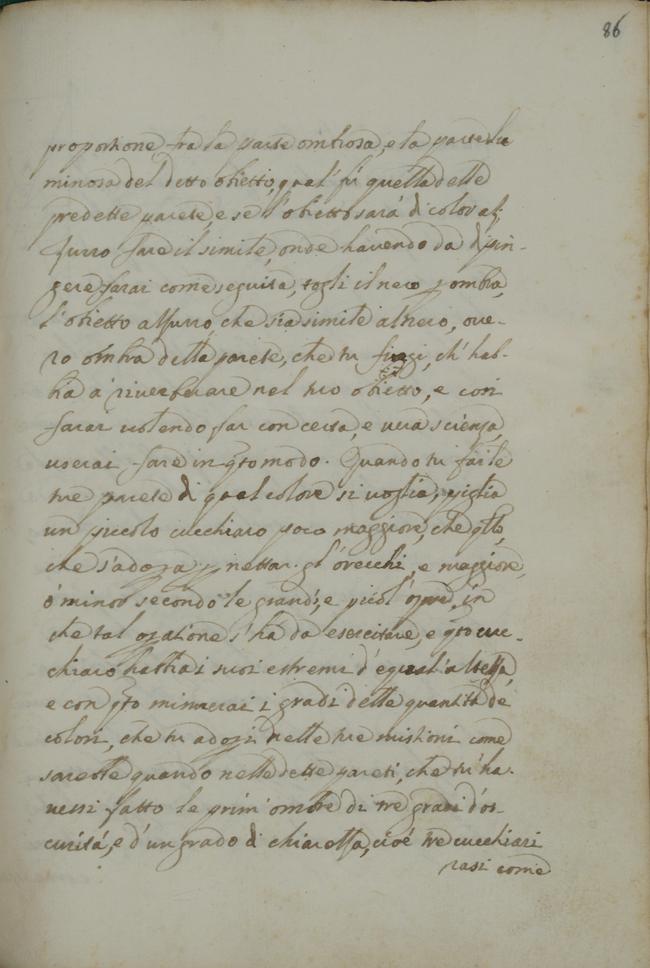 86
proportione fra la parte ombrosa, e la parte lu
minosa del detto obietto, qual' fù quella delle
predette parete, e se l'obietto sarà di color az
zurro fare il simile, onde havendo da dipin-
gere farai come seguita, togli il nero p ombra,
l'obietto azzurro, che sia simile al nero, ove-
ro ombra della parete, che tu fingi, ch'hab-
bia à riverberare nel tuo obietto, e così
farai volendo far con certa, e vera scienza,
userai fare in qto modo. Quando tu fai le
tue parete di qual colore si voglia, piglia
un piccolo cucchiaro poco maggiore, che qllo,
che s'adopra p nettar gl'orecchi, e maggiore,
ò minor secondo le grandi, e picol' opre, in
che tal opatione s'ha da esercitare, e qto cuc-
chiaro habbia i suoi estremi d'equal'altezza,
e con qto misurerai i gradi delle quantità de
colori, che tu adopri nelle tue mistioni come
sarebbe quando nelle dette pareti, che tu ha-
vessi fatto le prim'ombre di tre gradi d'os-
curità, e d'un grado di chiarezza, cioè tre cucchiari
rasi come